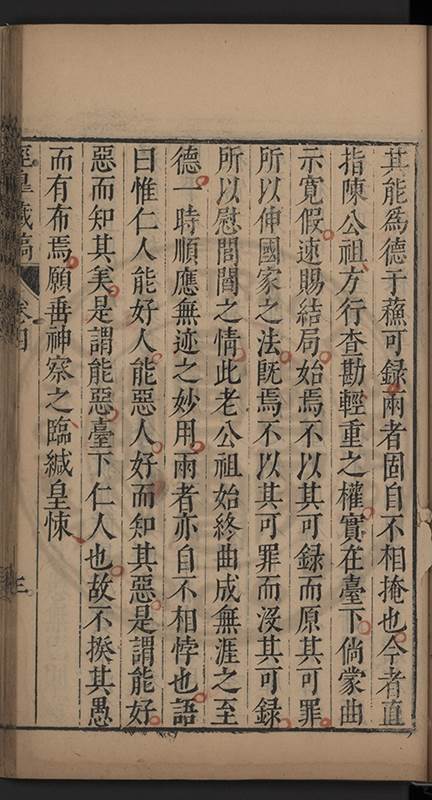 其能爲德于蘓可録兩者固自不相掩也今者直
指陳公祖方行查勘輕重之權實在臺下倘蒙曲
示寛假速賜結局始焉不以其可録而原其可罪
所以伸國家之法旣焉不以其可罪而沒其可録
所以慰閭閻之情此老公祖始終曲成無涯之至
德一時順應無迹之妙用兩者亦自不相悖也語
曰惟仁人能好人能惡人好而知其惡是謂能好
惡而知其美是謂能惡臺下仁人也故不揆其愚
而有布焉願垂神察之臨緘皇悚
卷四
三